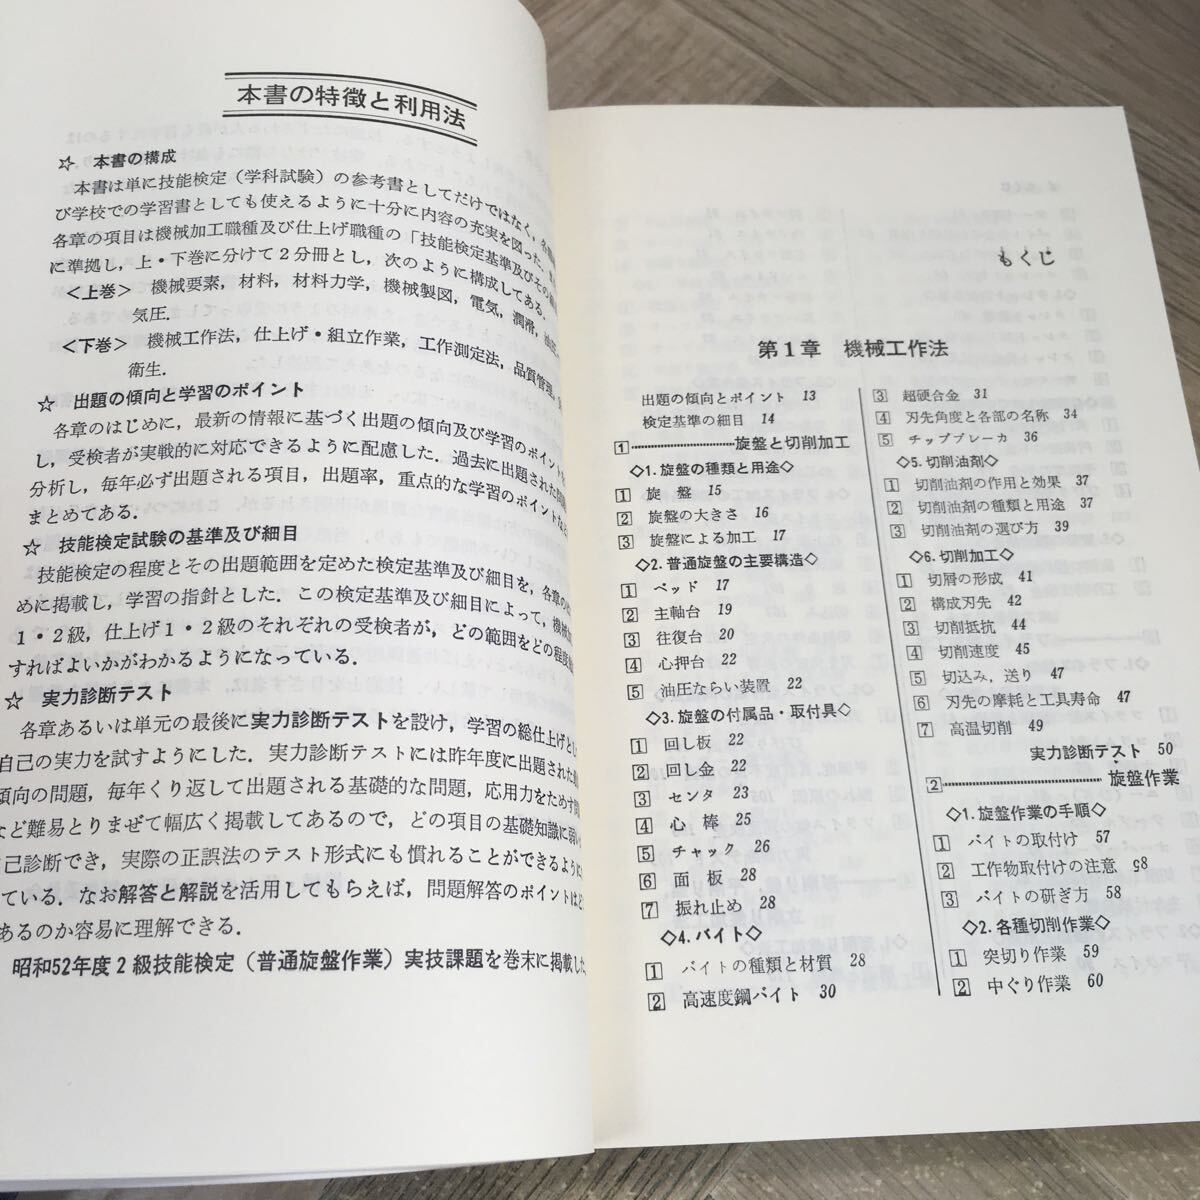 本書の特徴と利用法
☆ 本書の構成
本書は単に技能検定（学科試験）の参考書としてだけではなく，各
び学校での学習書としても使えるように十分に内容の充実を図った．
各章の項目は機械加工職種及び仕上げ職種の「技能検定基準及びその細
に準拠し，上・下巻に分けて２分冊とし，次のように構成してある．
＜上巻＞ 機械要素，材料，材料力学，機械製図，電気，潤滑，
気圧．
＜下巻＞ 機械工作法，仕上げ・組立作業，工作測定法，品質管理，
衛生．
☆ 出題の傾向と学習のポイント
各章のはじめに，最新の情報に基づく出題の傾向及び学習のポイントを
し，受検者が実戦的に対応できるように配慮した．過去に出題された問題
分析し，毎年必ず出題される項目，出題率，重点的な学習のポイントなど
まとめてある．
☆ 技能検定試験の基準及び細目
技能検定の程度とその出題範囲を定めた検定基準及び細目を，各章の
めに掲載し，学習の指針とした．この検定基準及び細目によって，機械加
１・２級，仕上げ１・２級のそれぞれの受検者が，どの範囲をどの程度
すればよいかがわかるようになっている．
☆ 実力診断テスト
各章あるいは単元の最後に実力診断テストを設け，学習の総仕上げとし
自己の実力を試すようにした．実力診断テストには昨年度に出題された
傾向の問題，毎年くり返して出題される基礎的な問題，応用力をためす問
など難易とりまぜて幅広く掲載してあるので，どの項目の基礎知識に弱い
己診断でき，実際の正誤法のテスト形式にも慣れることができるように
ている．なお解答と解説を活用してもらえば，問題解答のポイントはど
あるのか容易に理解できる．
昭和52年度２級技能検定（普通旋盤作業）実技課題を巻末に掲載した
もくじ
第１章 機械工作法
出題の傾向とポイント 13
検定基準の細目 14
1 旋盤と切削加工
◇1. 旋盤の種類と用途◇
1 旋盤 15
2 旋盤の大きさ 16
3 旋盤による加工 17
◇2. 普通旋盤の主要構造◇
1 ベッド 17
2 主軸台 19
3 往復台 20
4 心押台 22
5 油圧ならい装置 22
◇3. 旋盤の付属品・取付具◇
1 回し板 22
2 回し金 22
3 センタ 23
4 心棒 25
5 チャック 26
6 面板 28
7 振れ止め 28
◇4. バイト◇
1 バイトの種類と材質 28
2 高速度鋼バイト 30
3 超硬合金 31
4 刃先角度と各部の名称 34
5 チップブレーカ 36
◇5. 切削油剤◇
1 切削油剤の作用と効果 37
2 切削油剤の種類と用途 37
3 切削油剤の選び方 39
◇6. 切削加工◇
1 切屑の形成 41
2 構成刃先 42
3 切削抵抗 44
4 切削速度 45
5 切込み，送り 47
6 刃先の摩耗と工具寿命 47
7 高温切削 49
実力診断テスト 50
2 旋盤作業
◇1. 旋盤作業の手順◇
1 バイトの取付け 57
2 工作物取付けの注意 58
3 バイトの研ぎ方 58
◇2. 各種切削作業◇
1 突切り作業 59
2 中ぐり作業 60